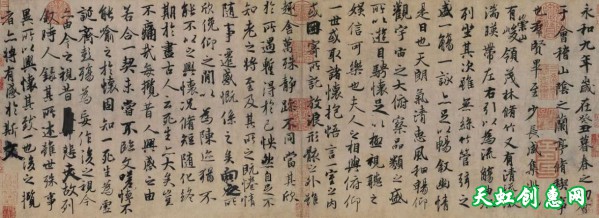 永和九年歲在癸丑暮春之初會
于會稽山陰之蘭亭脩稧事
也羣賢畢至少長咸集此地
有崇山峻領茂林脩竹又有清流激
湍暎帶左右引以為流觴曲水
列坐其次雖無絲竹管弦之
盛一觴一詠亦足以暢敘幽情
是日也天朗氣清惠風和暢仰
觀宇宙之大俯察品類之盛
所以遊目騁懷足以極視聽之
娛信可樂也夫人之相與俯仰
一世或取諸懷抱悟言一室之內
或因寄所託放浪形骸之外雖
趣舍萬殊靜躁不同當其欣
於所遇暫得於己怏然自足不
知老之將至及其所之既惓情
隨事遷感慨係之矣向之所
欣俛仰之間以為陳迹猶不
能不以之興懷況脩短隨化終
期於盡古人云死生亦大矣豈
不痛哉每攬昔人興感之由
若合一契未嘗不臨文嗟悼不
能喻之於懷固知一死生為虛
誕齊彭殤為妄作後之視今
亦由今之視昔悲夫故列
敘時人錄其所述雖世殊事
異所以興懷其致一也後之攬
者亦將有感於斯文
天虹创意网